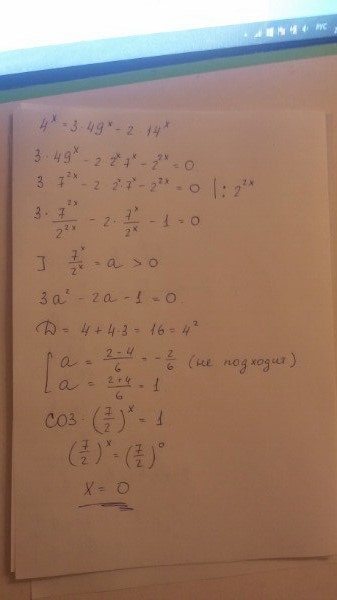 4^x = 3·49^x - 2·14^x
3·49^x - 2·2^x 7^x - 2^{2x} = 0
3 7^{2x} - 2·2^x 7^x - 2^{2x} = 0 | : 2^{2x}
3·7^{2x}/2^{2x} - 2·7^x/2^x - 1 = 0
] 7^x/2^x = a > 0
3a² - 2a - 1 = 0
D = 4 + 4·3 = 16 = 4²
[ a = (2-4)/6 = -2/6 (не подходит)
a = (2+4)/6 = 1
СОЗ: (7/2)^x = 1
(7/2)^x = (7/2)^0
x = 0
РУС